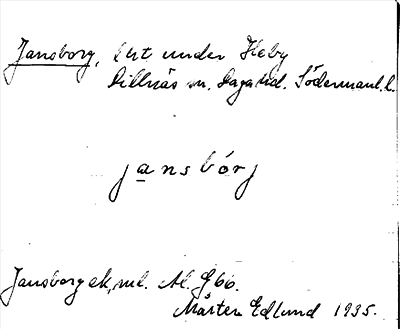 Jansborg, lht under Heby
Dillnäs sn. Daga hd. Södermanl. l.
jansbórj
Jansborg ek, ml. Al. G 66.
Mårten Edlund 1935.